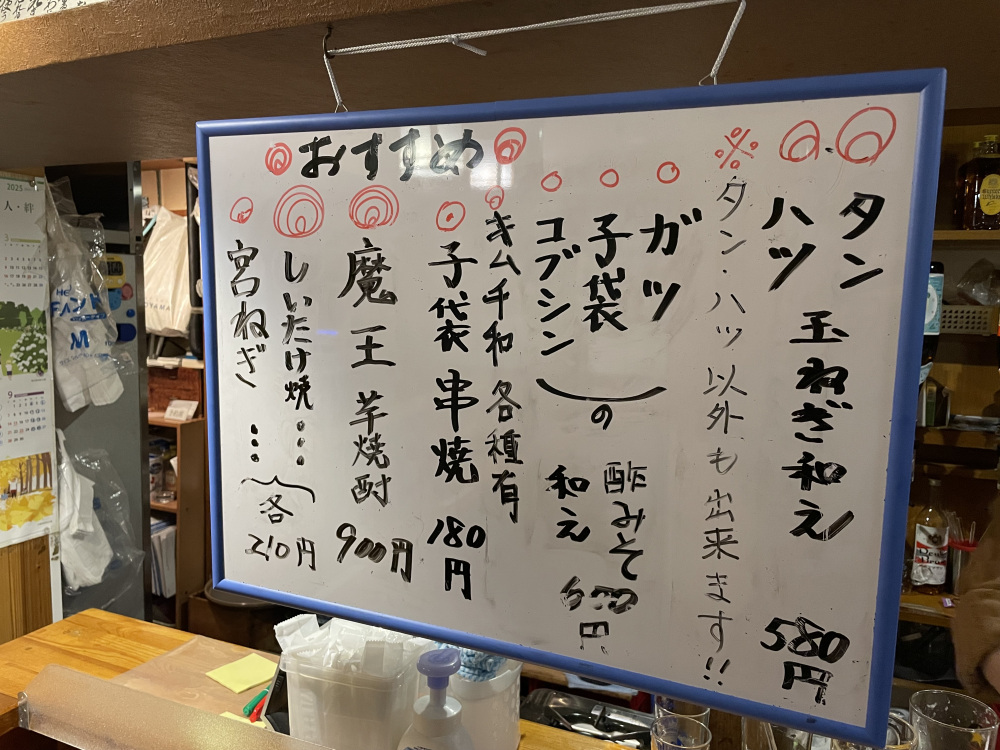 おすすめ
タン
ハツ
玉ねぎ和え
580円
※タン・ハツ以外も出来ます!!
ガツ
子袋
コブシン
の
酢みそ
和え
600円
キムチ和 各種有
子袋 串焼
180円
魔王 芋焼酎
900円
しいたけ焼…
宮ねぎ…
各
210円
2025
人・絆
3
9